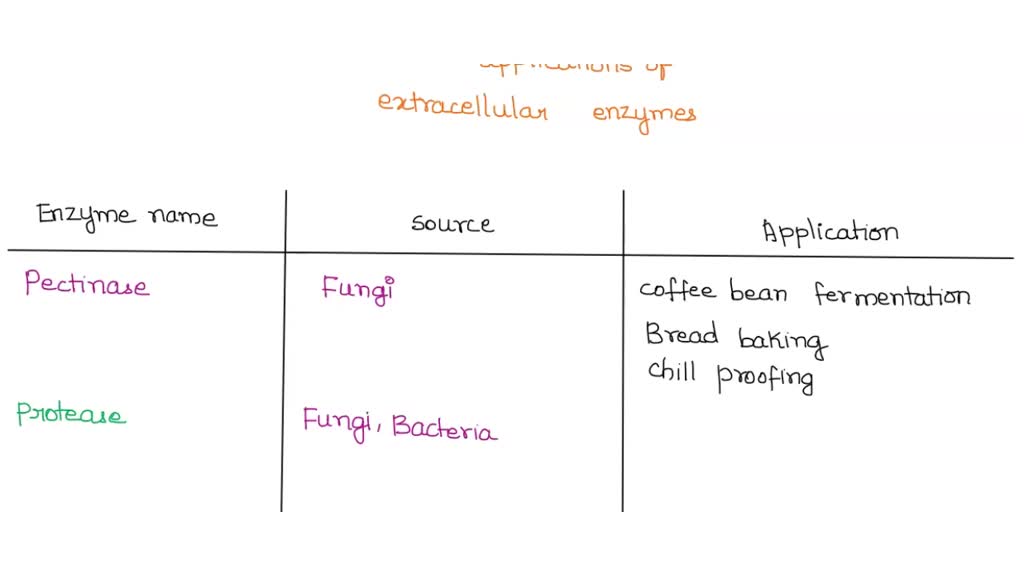 applications of
extracellular enzymes
Enzyme name source Application
Pectinase Fungi coffee bean fermentation
Bread baking
chill proofing
Protease Fungi, Bacteria